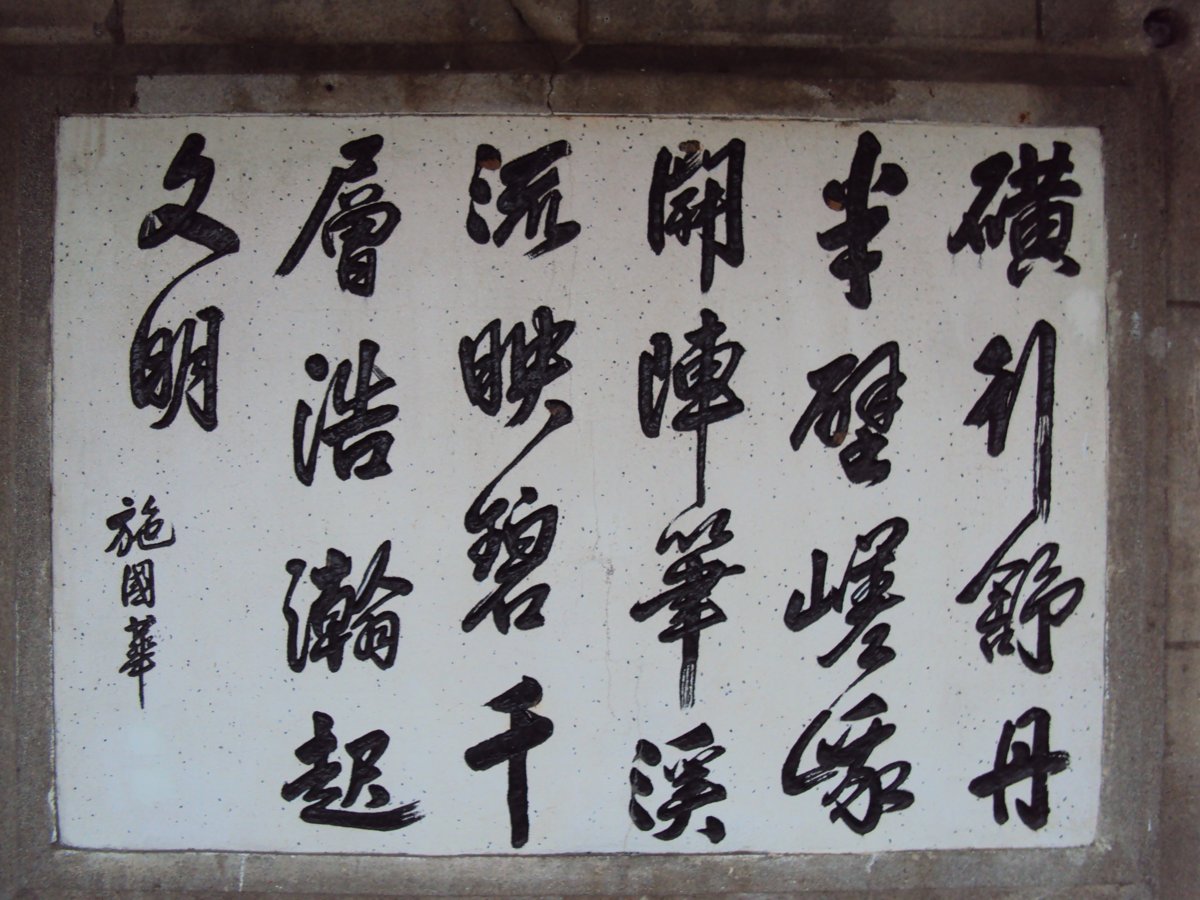 磺引舒丹
半壁嵯峨
開陣筆溪
流映碧千
層浩瀚起
文明
施國華